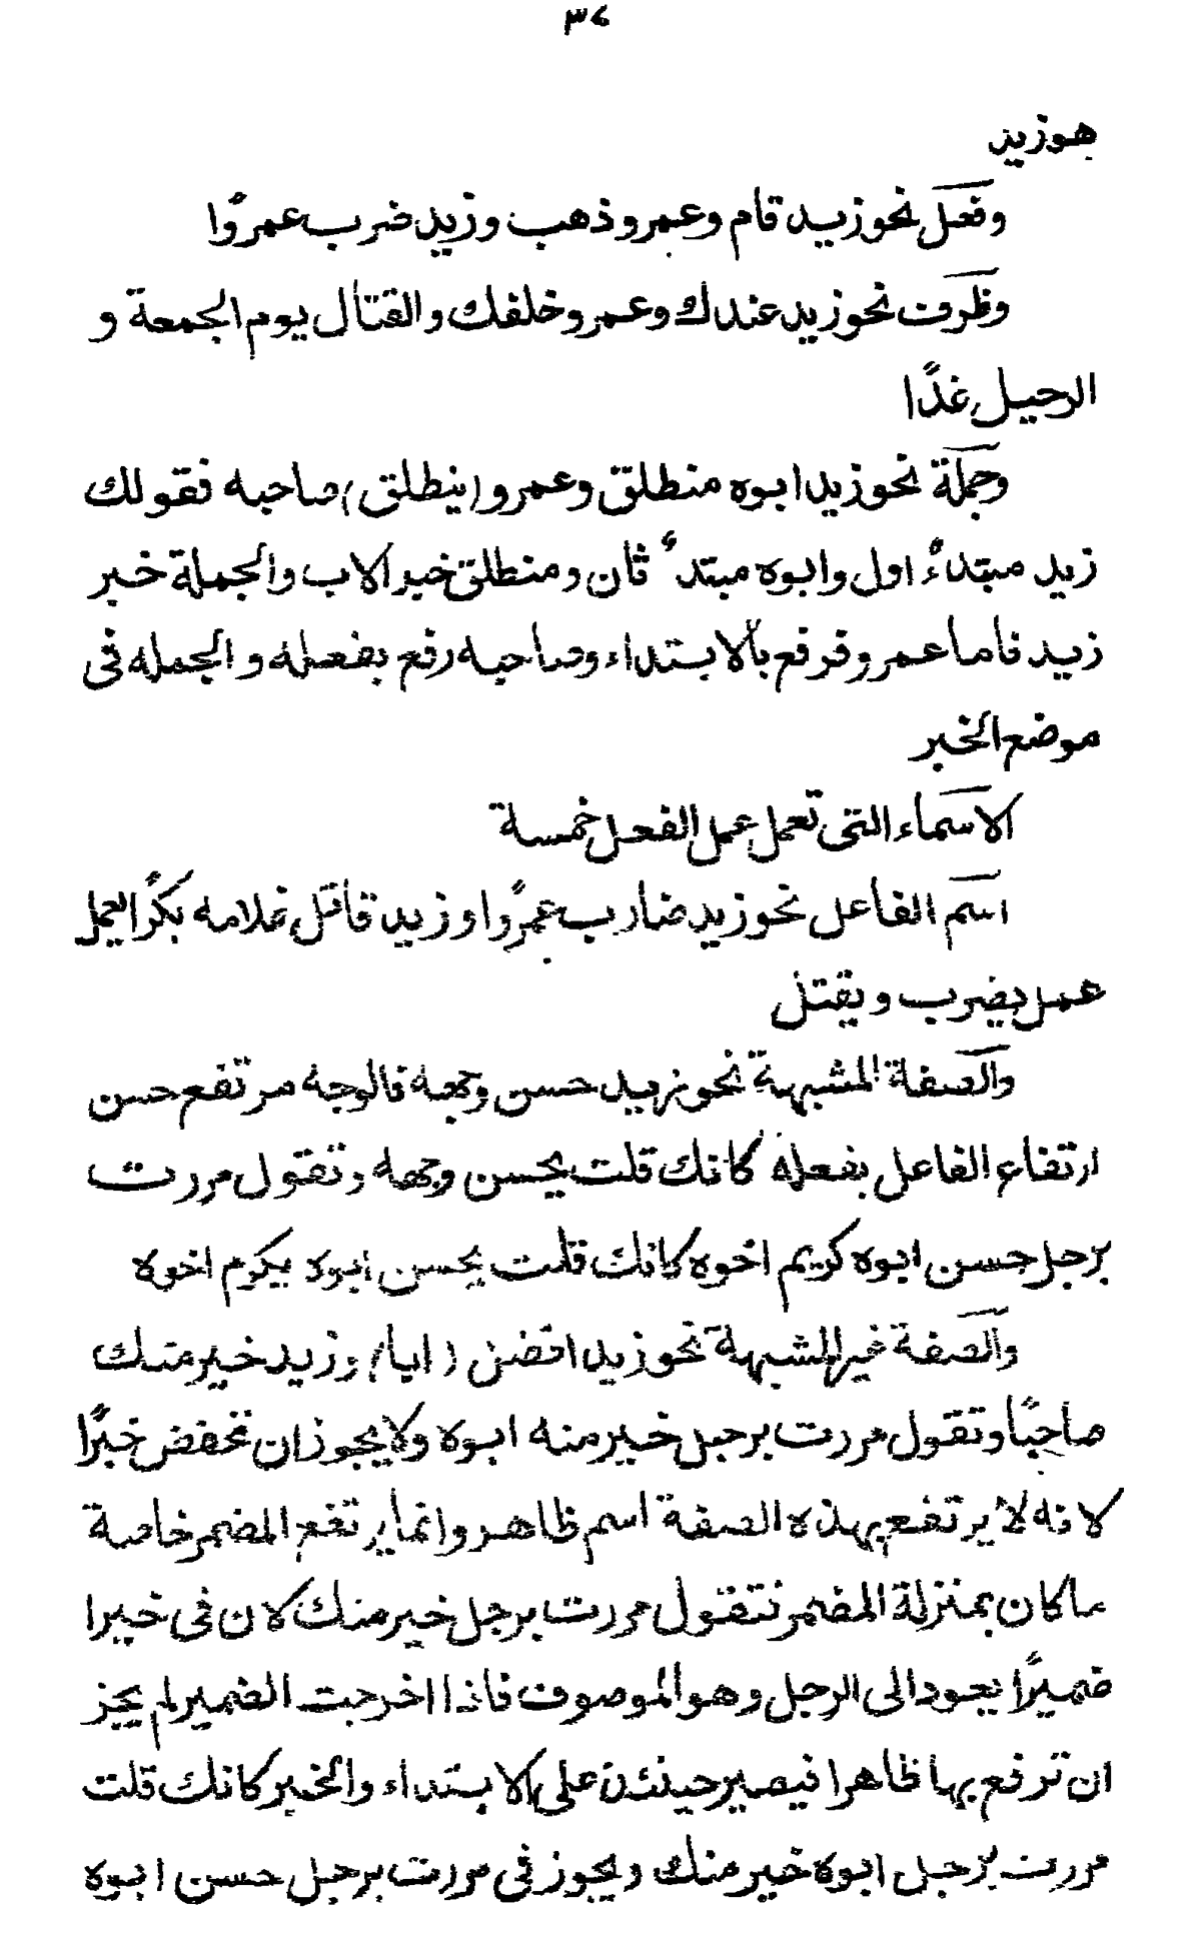 ٣٧
هو زيد
وفعل نحو زيد قام وعمرو ذهب وزيد ضرب عمرًوا
وظرف نحو زيد عندك وعمرو خلفك والقتال يوم الجمعة و
الرحيل غدًا
وجملة نحو زيد ابوه منطلق وعمرو (ينطلق) صاحبه فقولك
زيد مبتدءٌ اول وابوه مبتدءٌ ثان ومنطلق خبر الاب والجملة خبر
زيد فاما عمرو فرفع بالابتداء وصاحبه رفع بفعله والجمله فى
موضع الخبر
الاسماء التى تعمل عمل الفعل خمسة
اسم الفاعل نحو زيد ضارب عمرًوا وزيد قاتل غلامه بكرًا يعمل
عمل يضرب ويقتل
والصفة المشبهة نحو زيد حسن وجهه فالوجه مرتفع حسن
ارتفاع الفاعل بفعله كانك قلت يحسن وجهه وتقول مررت
برجل حسن ابوه كريم اخوه كانك قلت يحسن ابوه يكرم اخوه
والصفة غير المشبهة نحو زيد افضل (ابا) وزيد خير منك
صاحبًا وتقول مررت برجل خير منه ابوه ولا يجوز ان تخفض خيرًا
لانه لا يرتفع بهذه الصفة اسم ظاهر وانما يرتفع المضمر خاصة
ما كان بمنزلة المضمر فتقول مررت برجل خير منك لان فى خيرا
ضميرًا يعود الى الرجل وهو الموصوف فاذا اخرجت الضمير لم يجز
ان ترفع بها ظاهرا فيصير حينئذ على الابتداء والخبر كانك قلت
مررت برجل ابوه خير منك ويجوز فى مررت برجل حسن ابوه